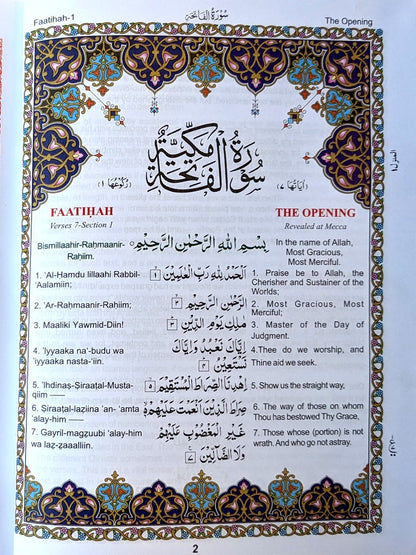 Faatihah-1 سُوْرَةُ الْفَاتِحَة The Opening
سُوْرَةُ الْفَاتِحَةِ مَكِّيَّةٌ
(اٰيَاتُهَا ٧) (رُكُوْعُهَا ١)
FAATIḤAH
Verses 7-Section 1
THE OPENING
Revealed at Mecca
Bismillaahir-Raḥmaanir-
Raḥiim.
بِسْمِ اللّٰهِ الرَّحْمٰنِ الرَّحِيْمِ
In the name of Allah,
Most Gracious,
Most Merciful.
1. 'Al-Ḥamdu lillaahi Rabbil-
'Aalamiin;
اَلْحَمْدُ لِلّٰهِ رَبِّ الْعٰلَمِيْنَ ١
1. Praise be to Allah, the
Cherisher and Sustainer of the
Worlds;
2. 'Ar-Raḥmaanir-Raḥiim;
الرَّحْمٰنِ الرَّحِيْمِ ٢
2. Most Gracious, Most
Merciful;
3. Maaliki Yawmid-Diin!
مٰلِكِ يَوْمِ الدِّيْنِ ٣
3. Master of the Day of
Judgment.
4. 'Iyyaaka na'-budu wa
'iyyaaka nasta-'iin.
اِيَّاكَ نَعْبُدُ وَاِيَّاكَ
نَسْتَعِيْنُ ٤
4.Thee do we worship, and
Thine aid we seek.
5. 'Ihdinaṣ-Ṣiraaṭal-Musta-
qiim ——
اِهْدِنَا الصِّرَاطَ الْمُسْتَقِيْمَ ٥
5. Show us the straight way,
6. Ṣiraaṭal-laẓiina 'an-'amta
'alay-him——
صِرَاطَ الَّذِيْنَ اَنْعَمْتَ عَلَيْهِمْ ٦
6. The way of those on whom
Thou has bestowed Thy Grace,
7. Gayril-magzuubi 'alay-him
wa laẓ-zaaalliin.
غَيْرِ الْمَغْضُوْبِ عَلَيْهِمْ
وَلَا الضَّآلِّيْنَ ٧
7. Those whose (portion) is not
wrath. And who go not astray.
المنزل ١
2